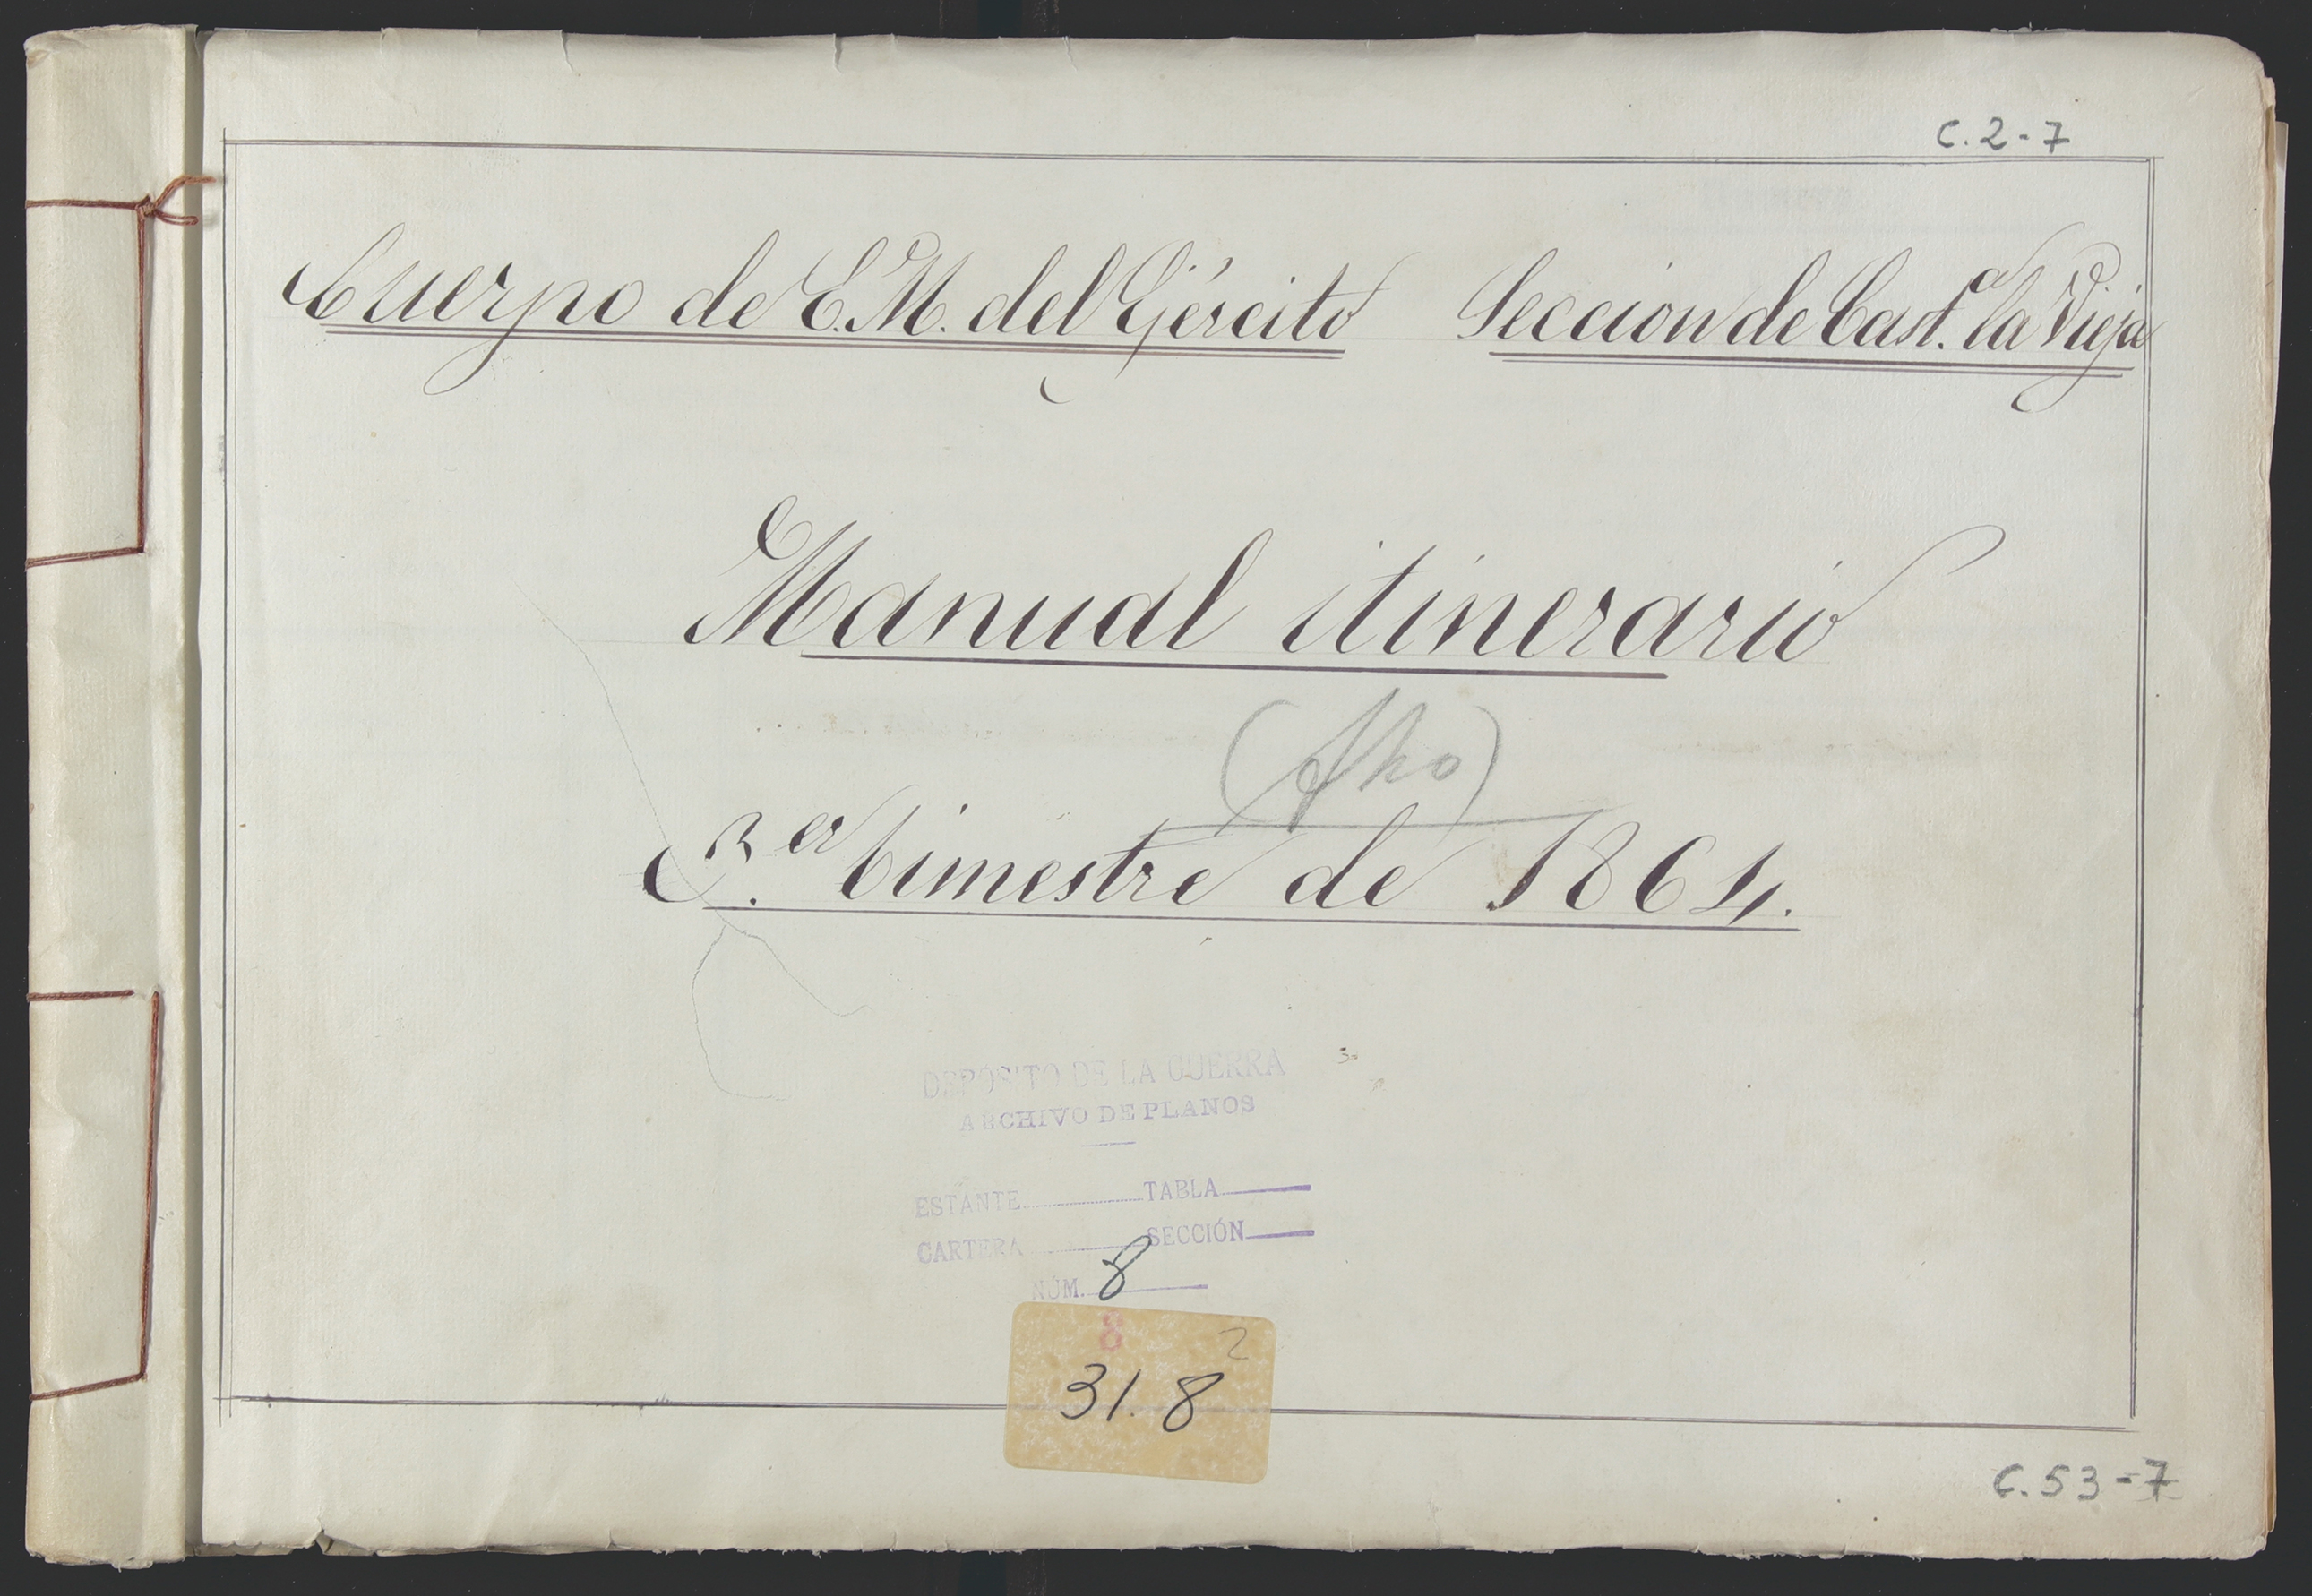 C.2-7
Cuerpo de E.M. del Ejército Seccion de Cast.ª la Vieja
Manual itinerario
3.er bimestre de 1864.
DEPOSITO DE LA GUERRA
ARCHIVO DE PLANOS
ESTANTE TABLA
CARTERA SECCIÓN
NÚM. 8
8 2
31.8
C.53-7